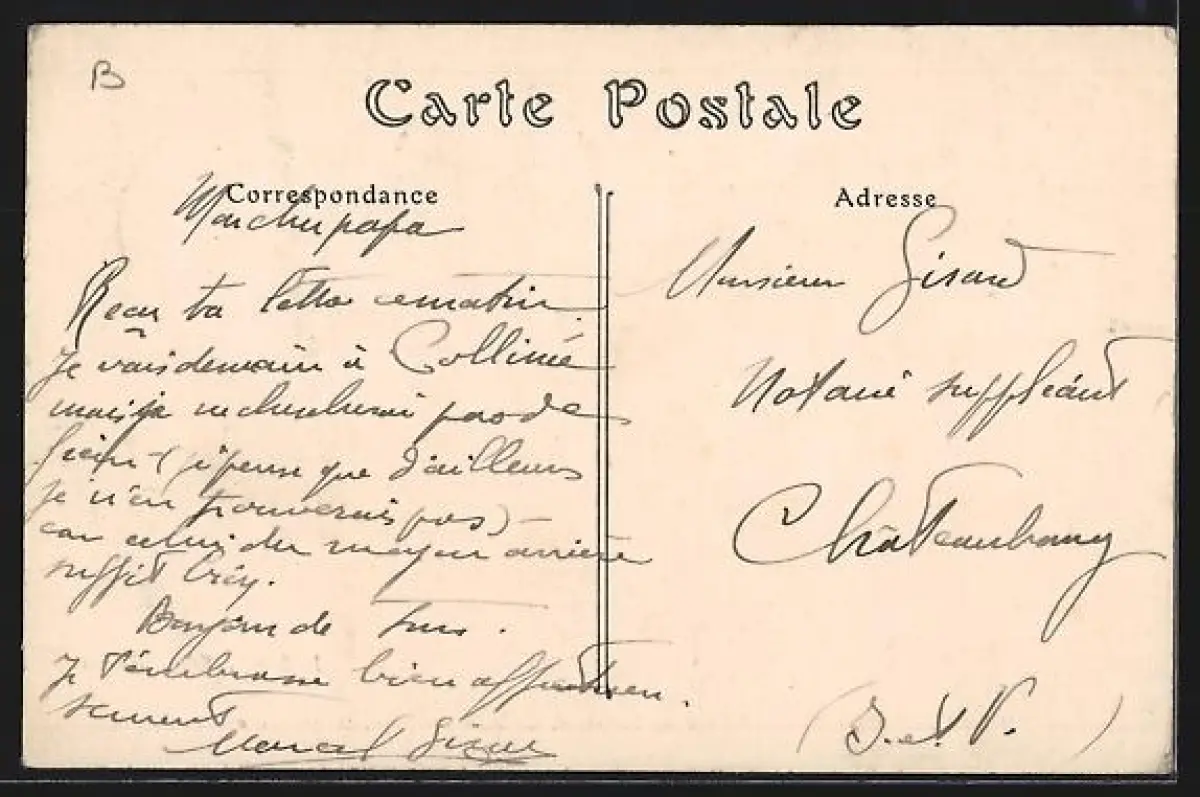 B
Carte Postale
Correspondance
Mon cher papa
Reçu ta lettre ce matin.
Je vais demain à Collinée
mais je ne chercherai pas de
( je pense que d'ailleurs
je n'en trouverais pas) -
car celui du moyeu arrière
suffit
Bonjour de tous.
Je t'embrasse bien affectueu
sement.
Marcel Girard
Adresse
Monsieur Girard
Notaire suppléant
Châteaubourg
(I. et V.)